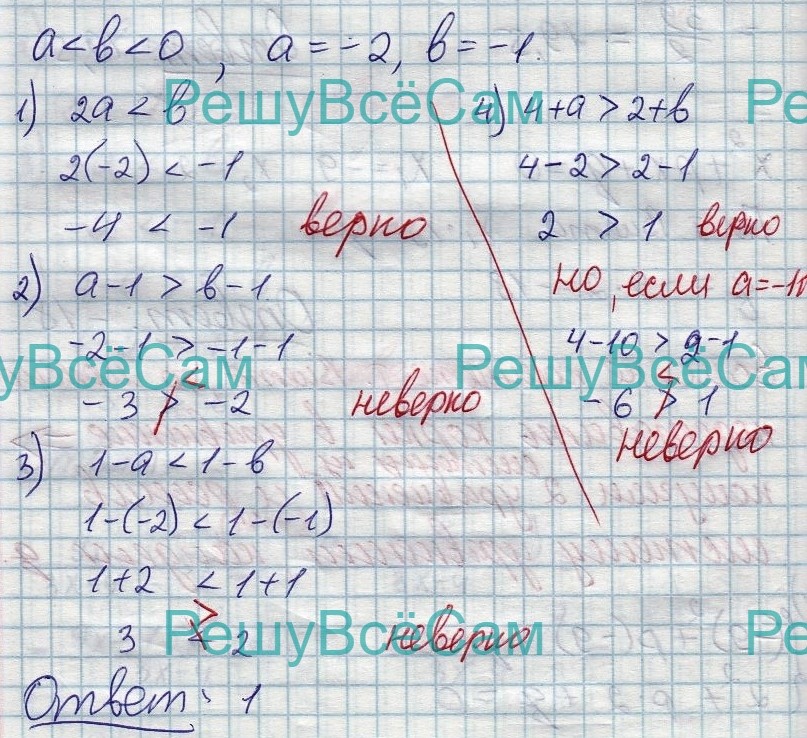 a < b < 0, a = -2, b = -1.
1) 2a < b
2(-2) < -1
-4 < -1 верно
2) a-1 > b-1
-2-1 > -1-1
<
-3 > -2 неверно
3) 1-a < 1-b
1-(-2) < 1-(-1)
1+2 < 1+1
>
3 < 2 неверно
Ответ: 1
4) 4+a > 2+b
4-2 > 2-1
2 > 1 верно
но, если a=-10
4-10 > 2-1
<
-6 > 1
неверно
РешуВсёСам
Ре
уВсёСам
РешуВсёСам
РешуВсёСам
Ре